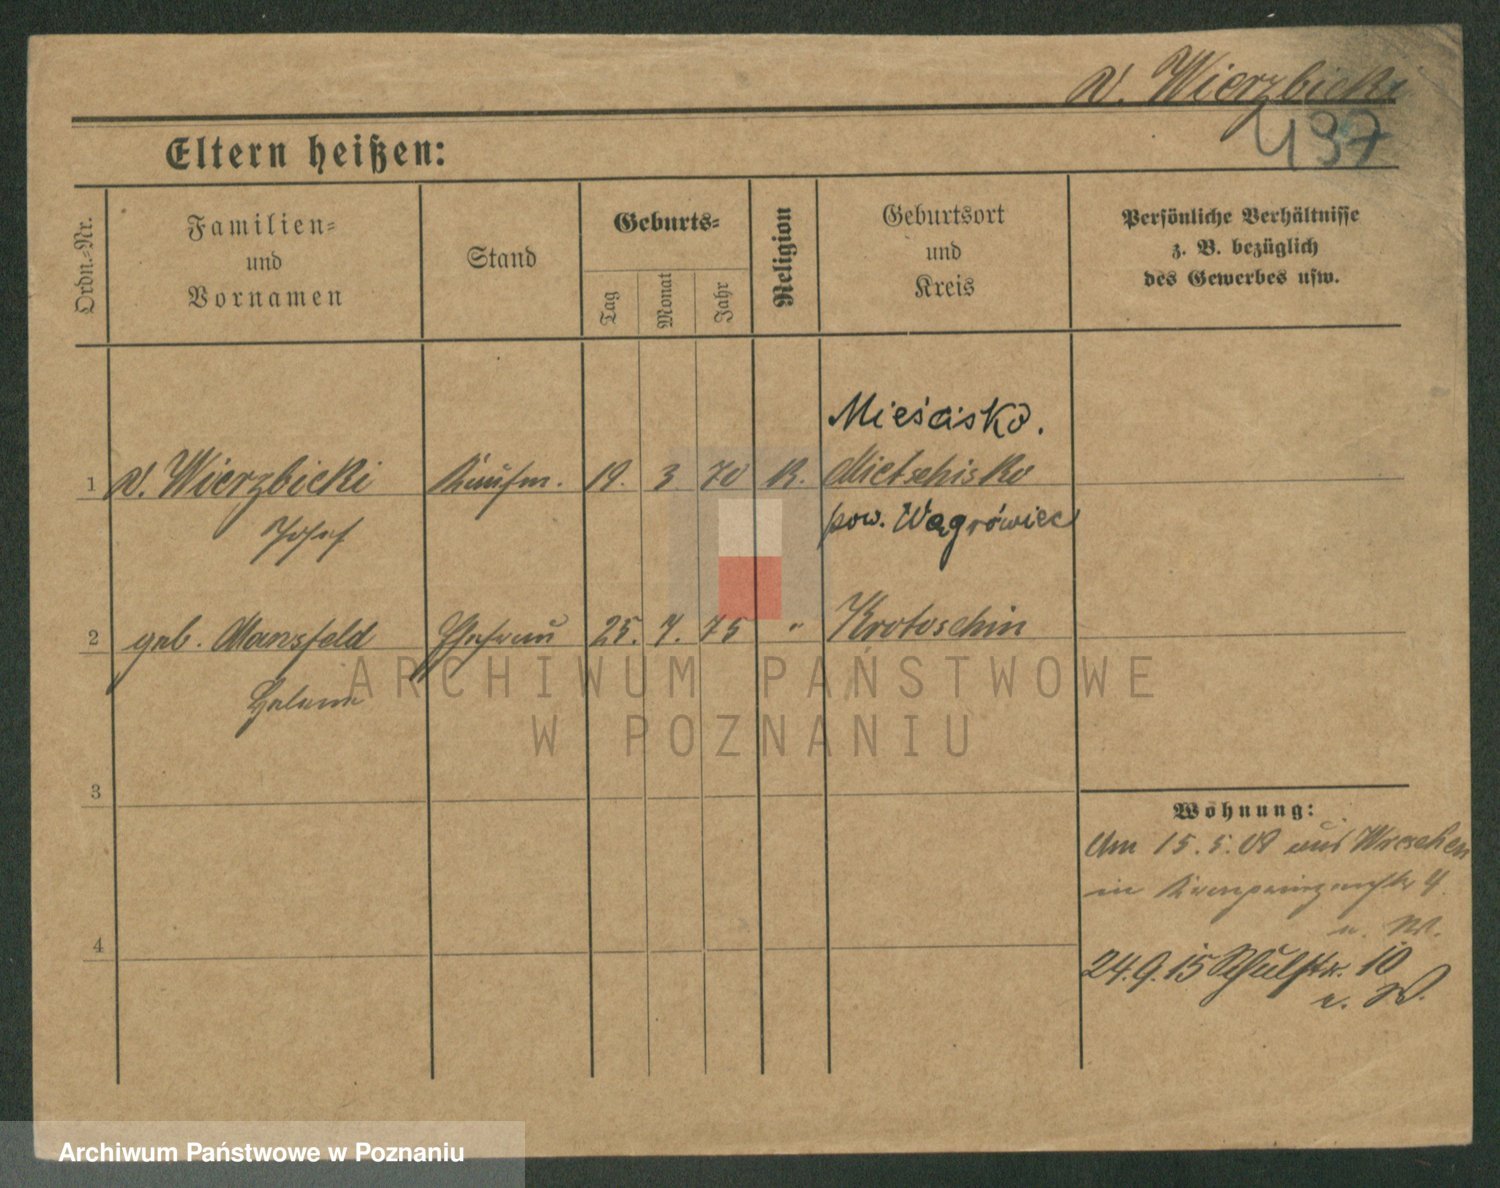 v. Wierzbicki
437
Eltern heißen:
Ordn.-Nr.
Familien-
und
Vornamen
Stand
Geburts-
Tag
Monat
Jahr
Religion
Geburtsort
und
Kreis
Persönliche Verhältnisse
z. B. bezüglich
des Gewerbes usw.
Mieścisko.
1 v. Wierzbicki Kaufm. 19. 3. 70 K. Mietschisko
Josef pow. Wągrówiec
2 geb. Mansfeld Ehefrau 25. 7. 75 " Krotoschin
Helene
3
4
Wohnung:
Am 15.5.08 aus Wreschen
in Kronprinzenstr 4.
u. W.
24.9.15 Schulstr. 10
u. W.
ARCHIWUM PAŃSTWOWE
W POZNANIU
Archiwum Państwowe w Poznaniu